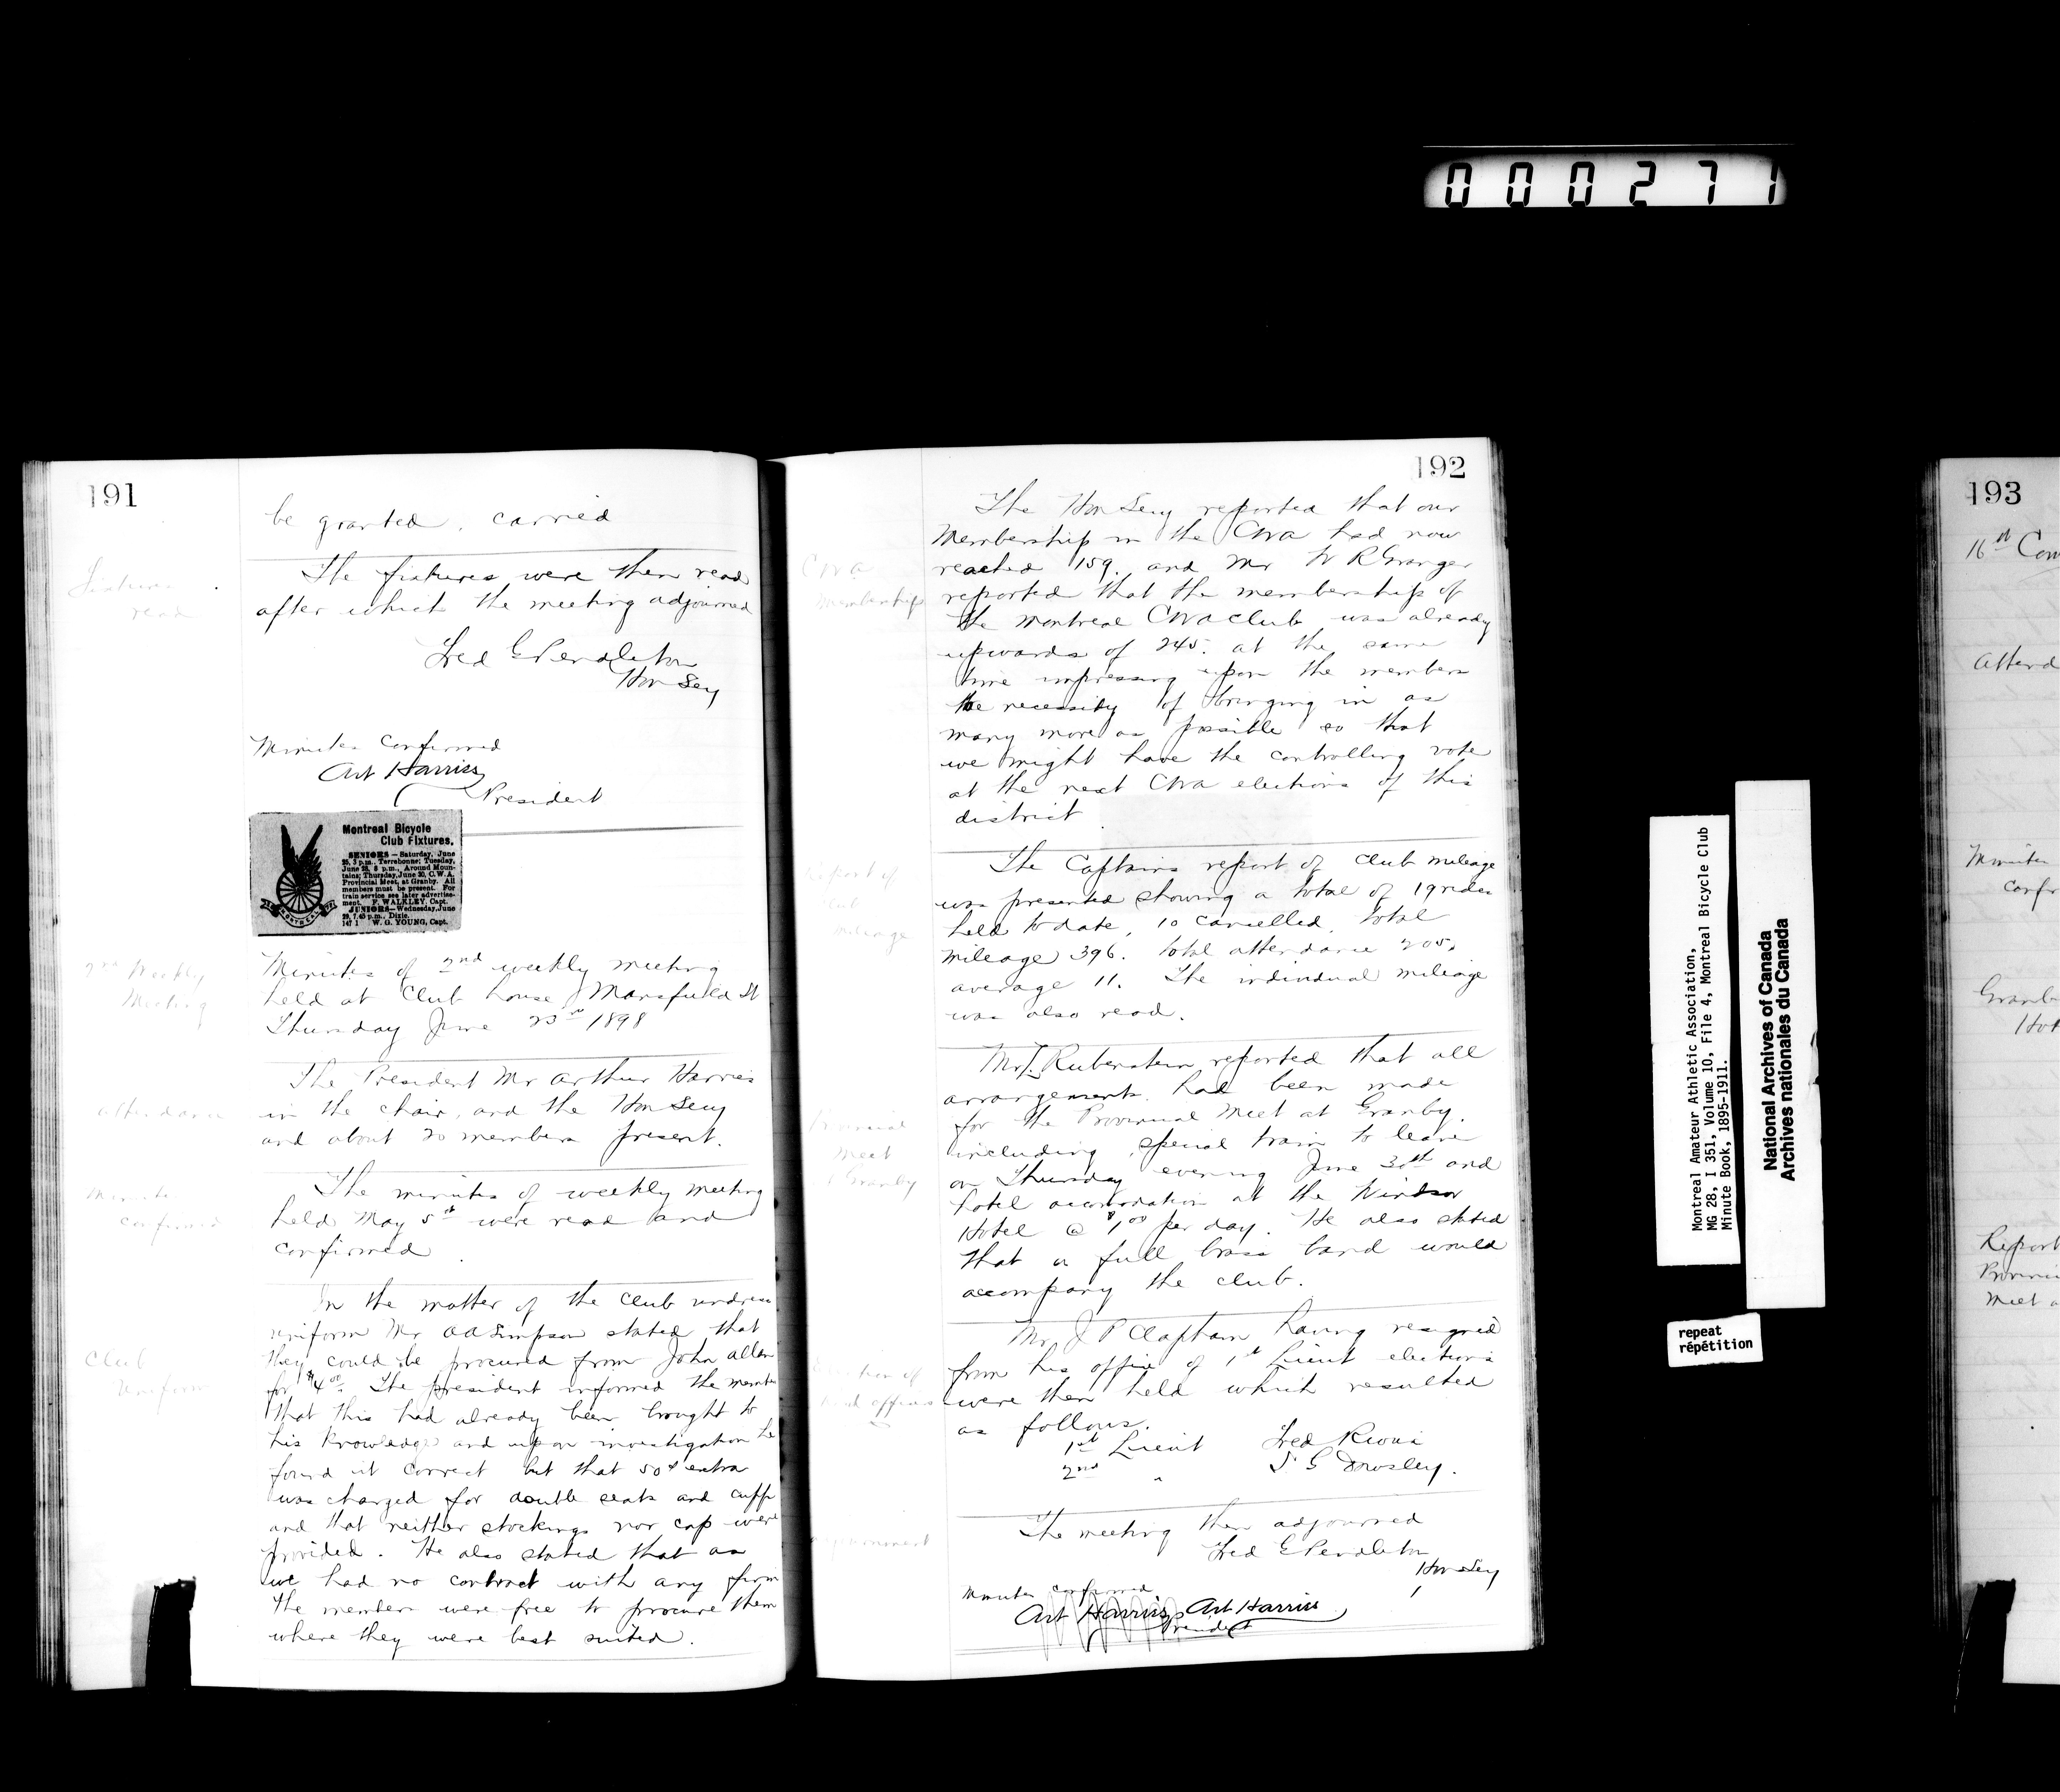 000271
191
be granted, carried
Fixtures
read
The fixtures were then read
after which the meeting adjourned
Fred G Pendleton
Hon Secy
Minutes Confirmed
Art Harriss
President
Montreal Bicycle
Club Fixtures.
SENIORS—Saturday, June
25, 3 p.m., Terrebonne; Tuesday,
June 28, 8 p.m., Around Moun-
tains; Thursday, June 30, C.W.A.
Provincial Meet, at Granby. All
members must be present. For
train service see later advertise-
ment. F. WALKLEY, Capt.
JUNIORS—Wednesday, June
29, 7.45 p.m., Dixie.
147 1 W. G. YOUNG, Capt.
MONTREAL
2nd Weekly
Meeting
Minutes of 2nd weekly meeting
held at Club house Mansfield St
Thursday June 23rd 1898
attendance
The President Mr Arthur Harries
in the chair, and the Hon Secy
and about 20 members present.
Minutes
confirmed
The minutes of weekly meeting
held May 5th were read and
confirmed
Club
Uniform
In the matter of the Club undress
uniform Mr A A Simpson stated that
they could be procured from John Allan
for $4.00. The president informed the membe
that this had already been brought to
his knowledge and upon investigation he
found it correct but that 50¢ extra
was charged for double seats and cuffs
and that neither stockings nor cap were
provided. He also stated that as
we had no contract with any firm
the members were free to procure them
where they were best suited.
192
CWA
membership
The Hon Secy reported that our
Membership in the CWA had now
reached 159. and Mr W R Granger
reported that the membership of
the Montreal CWA club was already
upwards of 245. at the same
time impressing upon the members
the necessity of bringing in as
many more as possible so that
we might have the controlling vote
at the next CWA elections of this
district
report of
Club
Mileage
The Captains report of Club mileage
was presented showing a total of 19 rides
held to date, 10 cancelled, total
mileage 396. total attendance 205.
average 11. The individual mileage
was also read.
Provincial
Meet
at Granby
Mr L Rubenstein reported that all
arrangements had been made
for the Provincial Meet at Granby.
including special train to leave
on Thursday evening June 30th and
hotel accomodation at the Windsor
Hotel @ $1.00 per day. He also stated
that a full brass band would
accompany the club.
Election of
road officers
Mr J P Clapham having resigned
from his office of 1st Lieut elections
were then held which resulted
as follows.
1st Lieut Fred
2nd "
adjournment
The meeting then adjourned
Fred G Pendleton
Hon Secy
Minutes confirmed
Art Harriss Art Harriss
President
193
16th Com
Attend
Minutes
confir
Granb
Hot
Report
Provinci
Meet a
Montreal Amateur Athletic Association,
MG 28, I 351, Volume 10, File 4, Montreal Bicycle Club
Minute Book, 1895-1911.
National Archives of Canada
Archives nationales du Canada
repeat
répétition